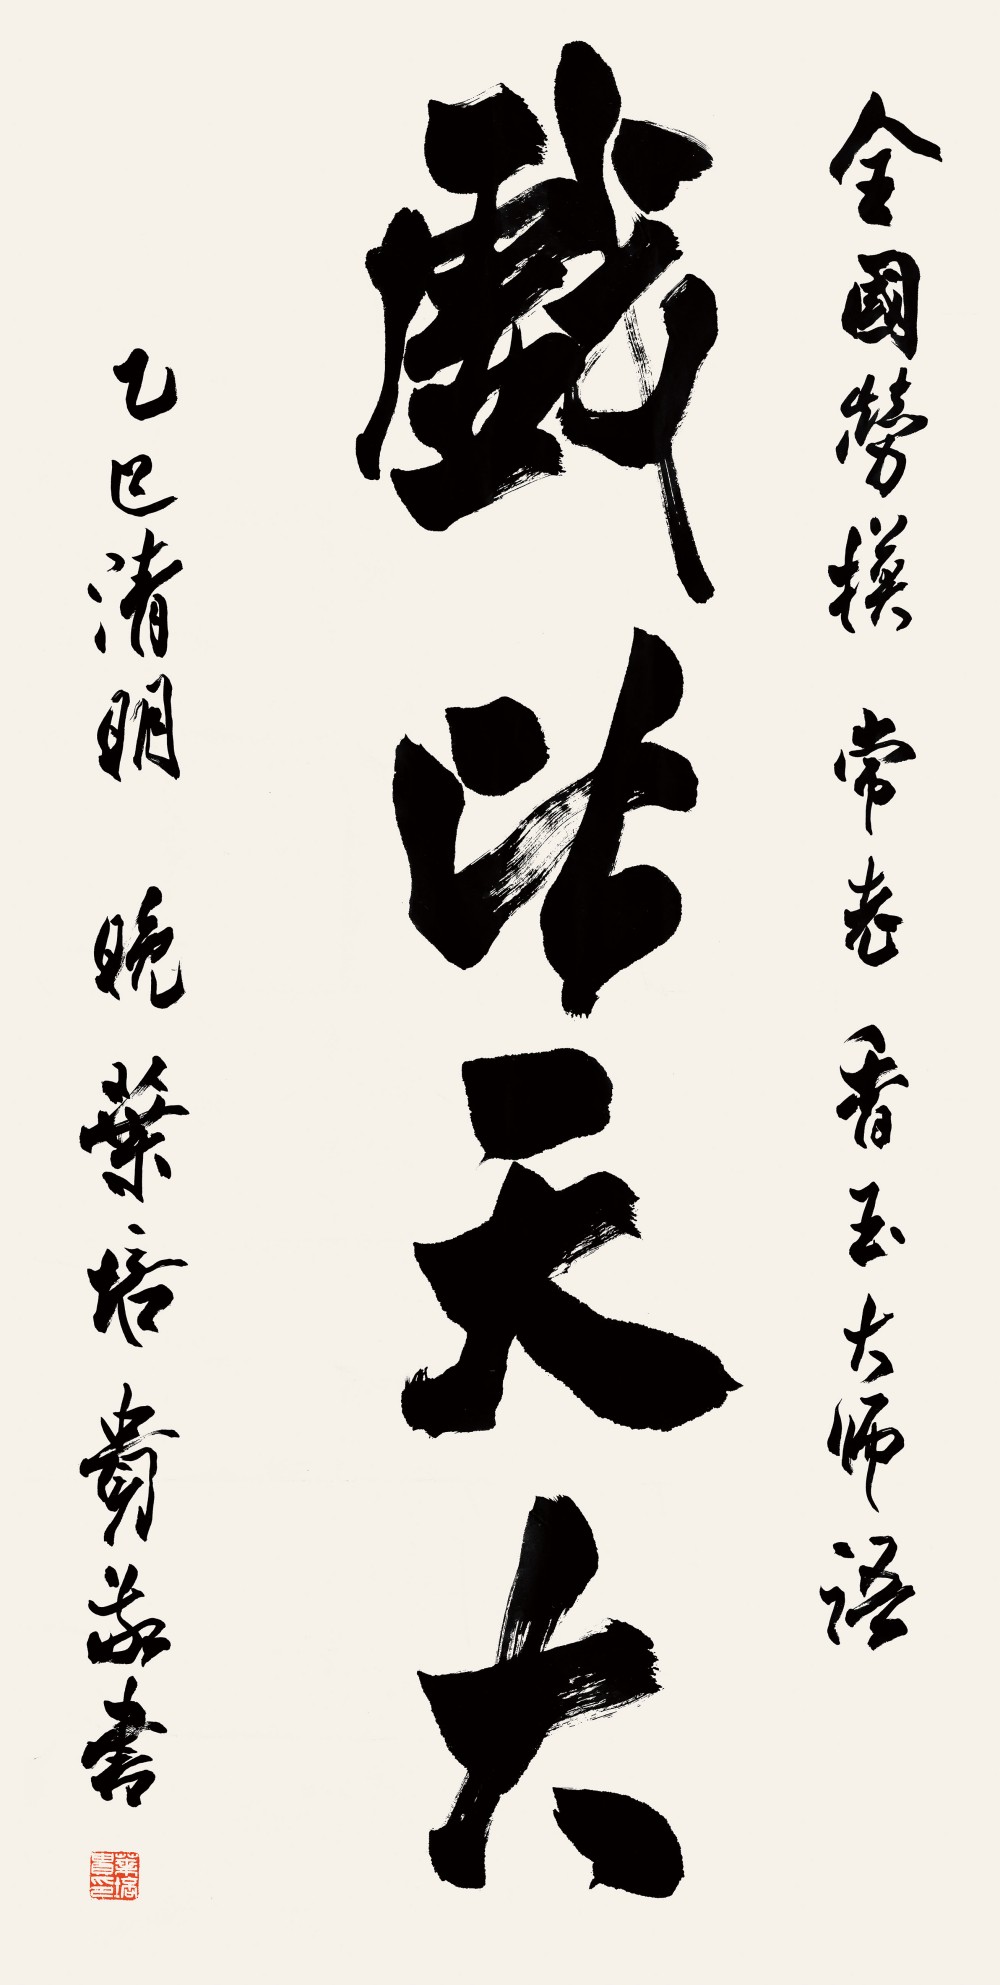 全國勞模 常老 香玉大師語
戲比天大
乙巳清明 晚 葉培貴敬書
葉培貴印